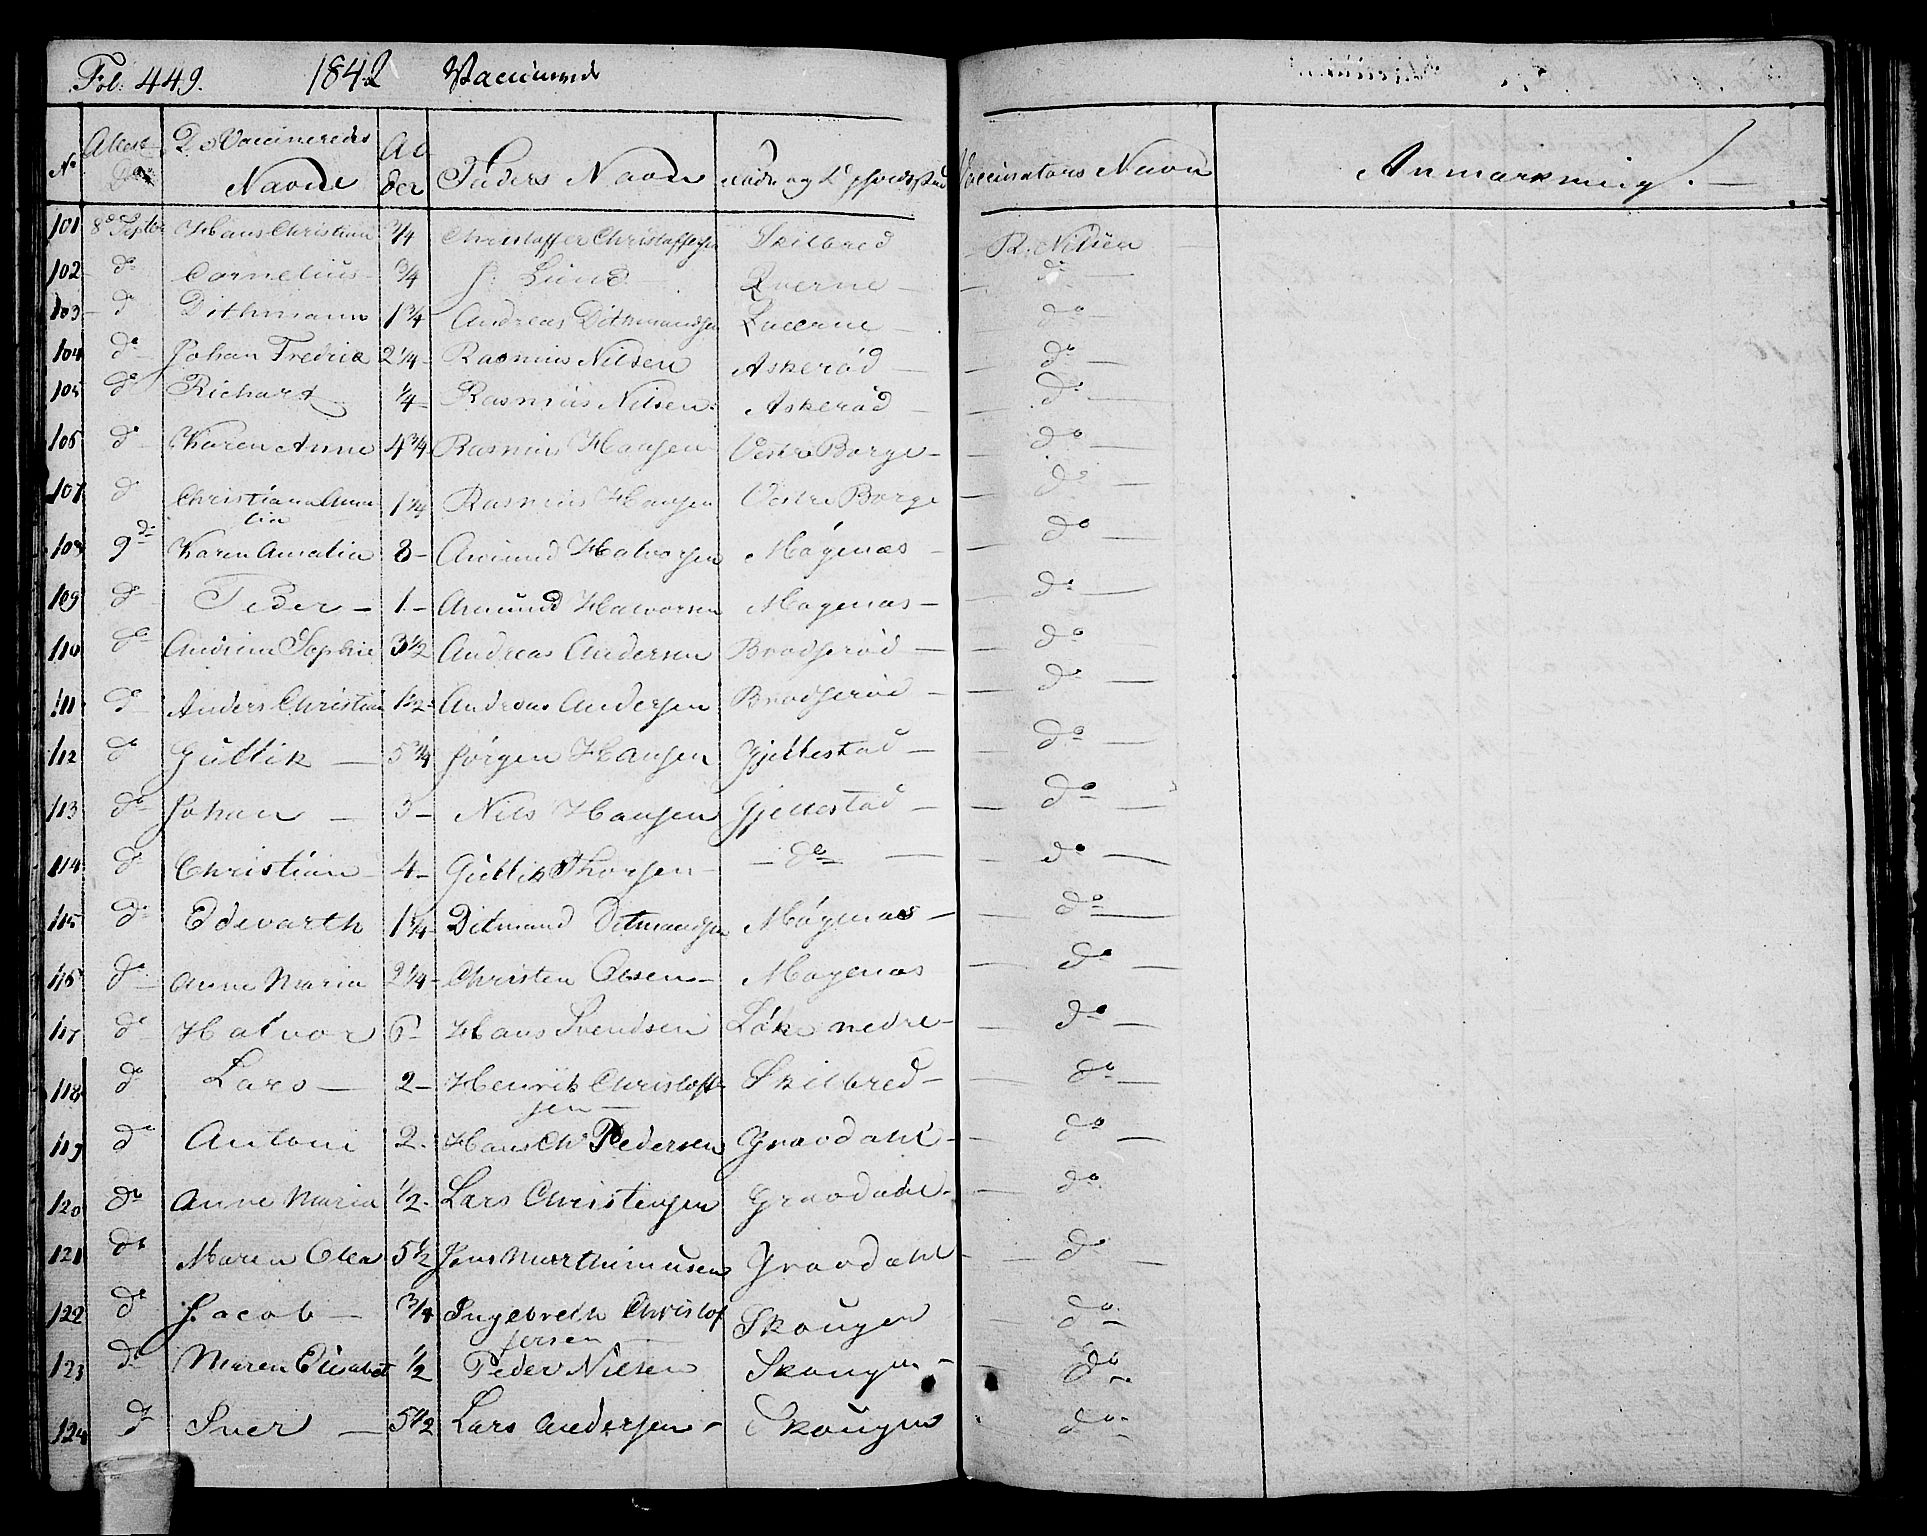 Fol: 449. 1842 Vaccinerede
No Attest De Vaccineredes Navne Al der Faders Navne Føde og Opholdssted Vaccinators Navn Anmærkning. —
101 8de Septbr Hans Christian 3/4 Christoffer Christoffersen Skilbred R. Nilsen
102 do Cornelius 3/4 J. Lund Kverne — do —
103 do Dithmann 1 3/4 Andreas Dithmandsen Kverne — do —
104 do Johan Fredrik 2 1/4 Rasmus Nilsen Askerød do —
105 do Richart 1/4 Rasmus Nilsen Askerød — do —
106 do Karen Anne 4 3/4 Rasmus Hansen Vestre Borge — do —
107 do Christiana Ama 1 3/4 Rasmus Hansen Vestre Borge — do —
lia
108 9 do Karen Amalia 8 — Amund Halvorsen Møgenæs — do —
109 do Peder — 1 — Amund Halvorsen Møgenæs — do —
110 do Andrine Sophie 3 1/2 Andreas Andersen Brodserød — do —
111 do Anders Christian 1 1/2 Andreas Andersen Brodserød — do —
112 do Gullik — 5 3/4 Jørgen Hansen Gjellestad — do —
113 do Johan — 3 — Nils Hansen Gjellestad — do —
114 do Christian — 4 — Gullik Thorsen — do — do —
115 do Edevarth 1 3/4 Ditmand Ditmandsen Møgenæs — do —
116 do Anne Maria 2 1/4 Christen Olsen — Møgenæs — do —
117 do Halvor 6 Hans Svendsen Løke nedre — do —
118 do Lars — 2 — Henrik Christoffer Skilbred — do —
sen —
119 do Antoni 2. Hans Chr Pedersen Gravdahl — do —
120 do Anne Maria 1/2. Lars Christensen Gravdahl — do
121 do Maren Olea 5 1/2 Jens Marthinusen Gravdahl — do —
122 do Jacob — 3/4 Ingebreth Christof Skougen — do —
fersen —
123 do Maren Elisabet 1/2 Peder Nilsen Skougen — do
124 do Iver — 5 1/2 Lars Andersen — Skougen do